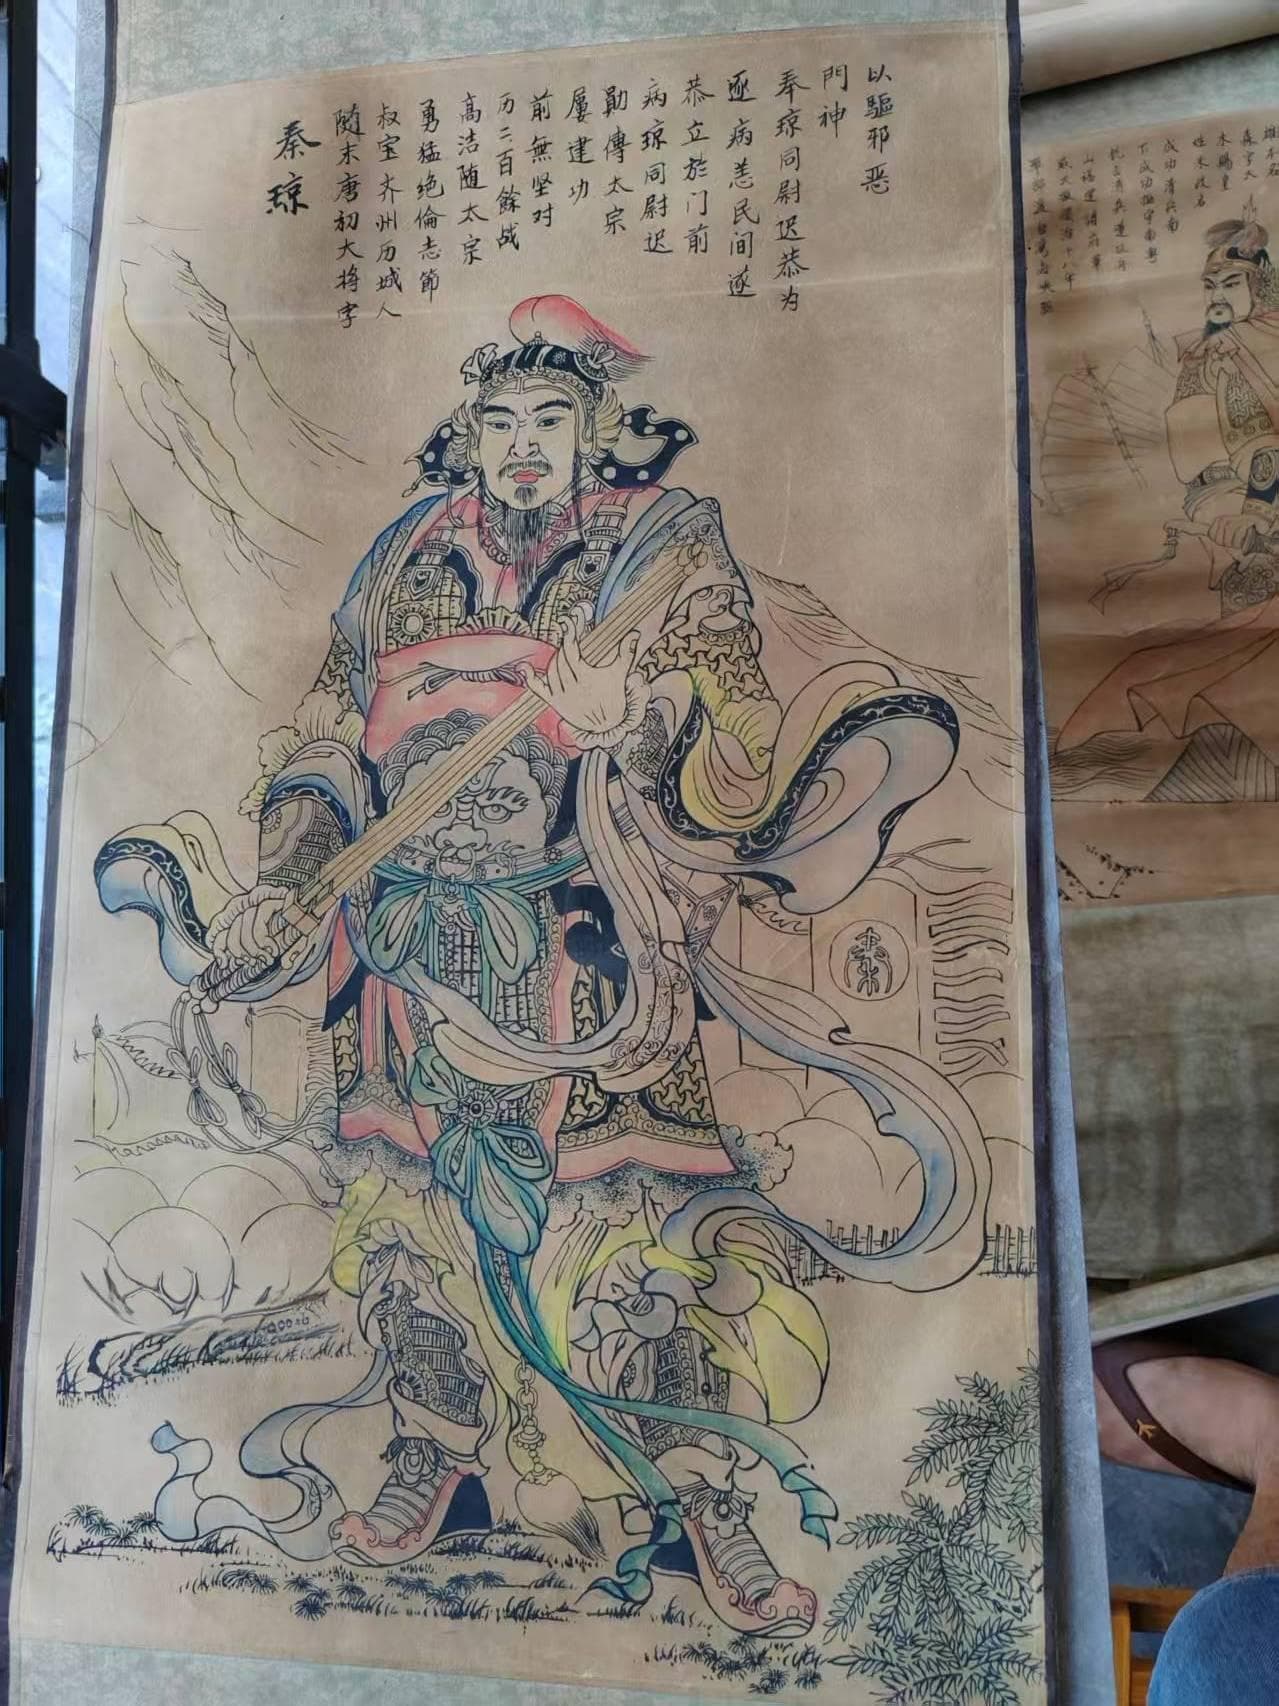 秦琼
隨末唐初大将字
叔宝齐州历城人
勇猛绝倫志節
高洁随太宗
历二百餘战
前無坚对
屡建功
勛傳太宗
病琼同尉迟
恭立於门前
逐病恙民間遂
奉琼同尉迟恭为
門神
以驅邪恶
秦
姓朱改名
成功清兵南